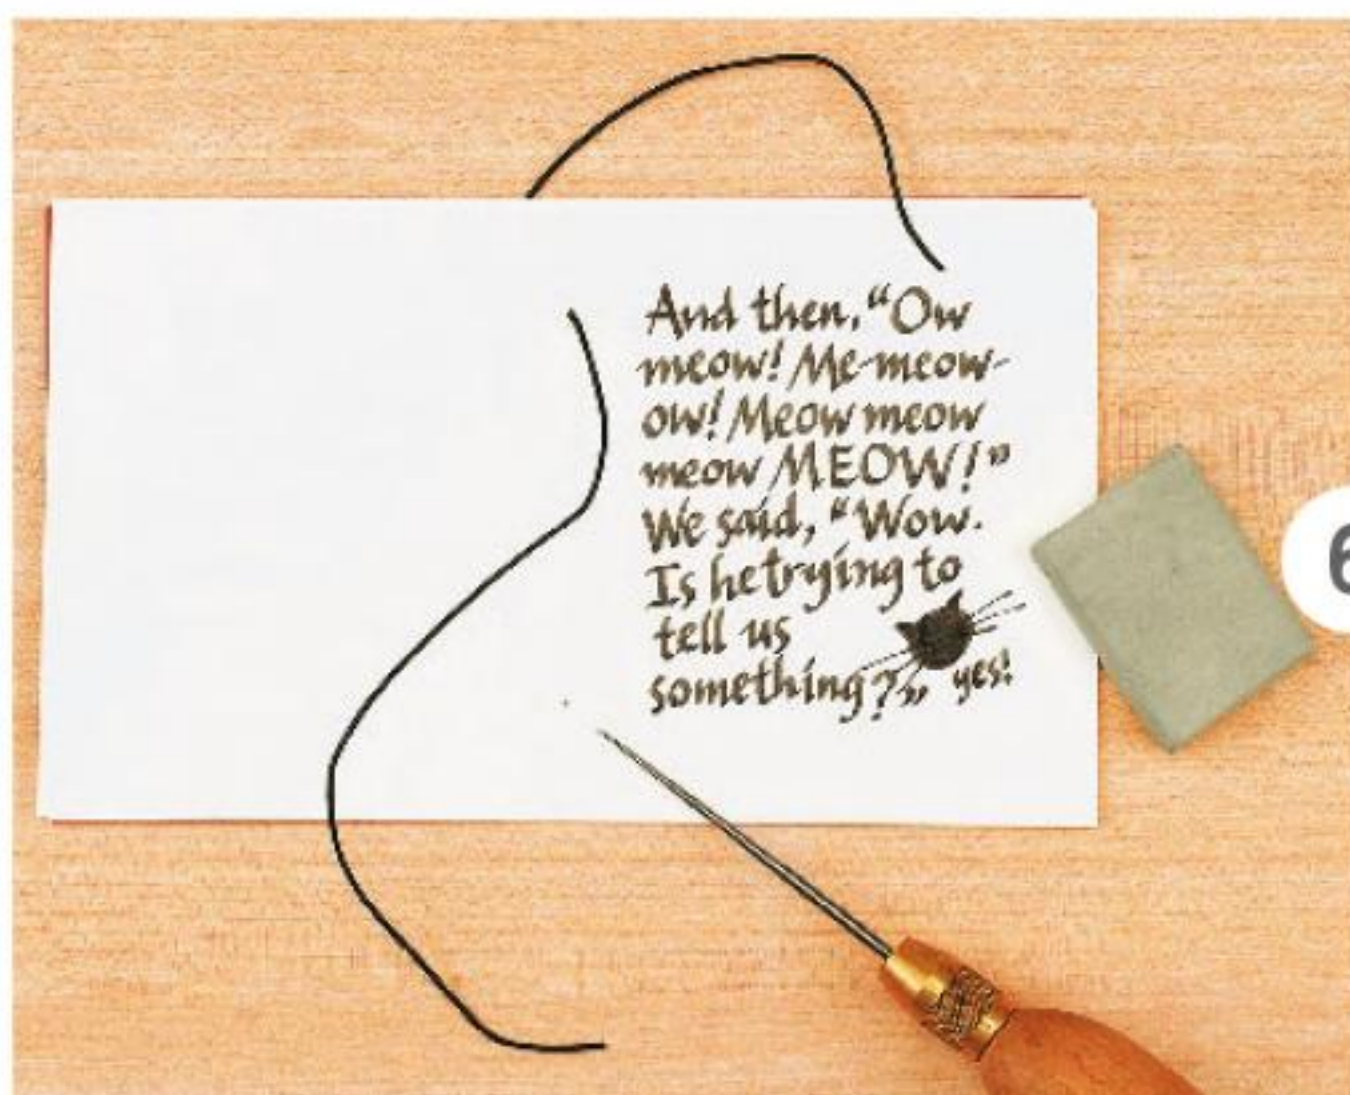 And then, “Ow
meow! Me-meow-
ow! Meow meow
meow MEOW!”
We said, “Wow.
Is he trying to
tell us
something?”
yes!
6